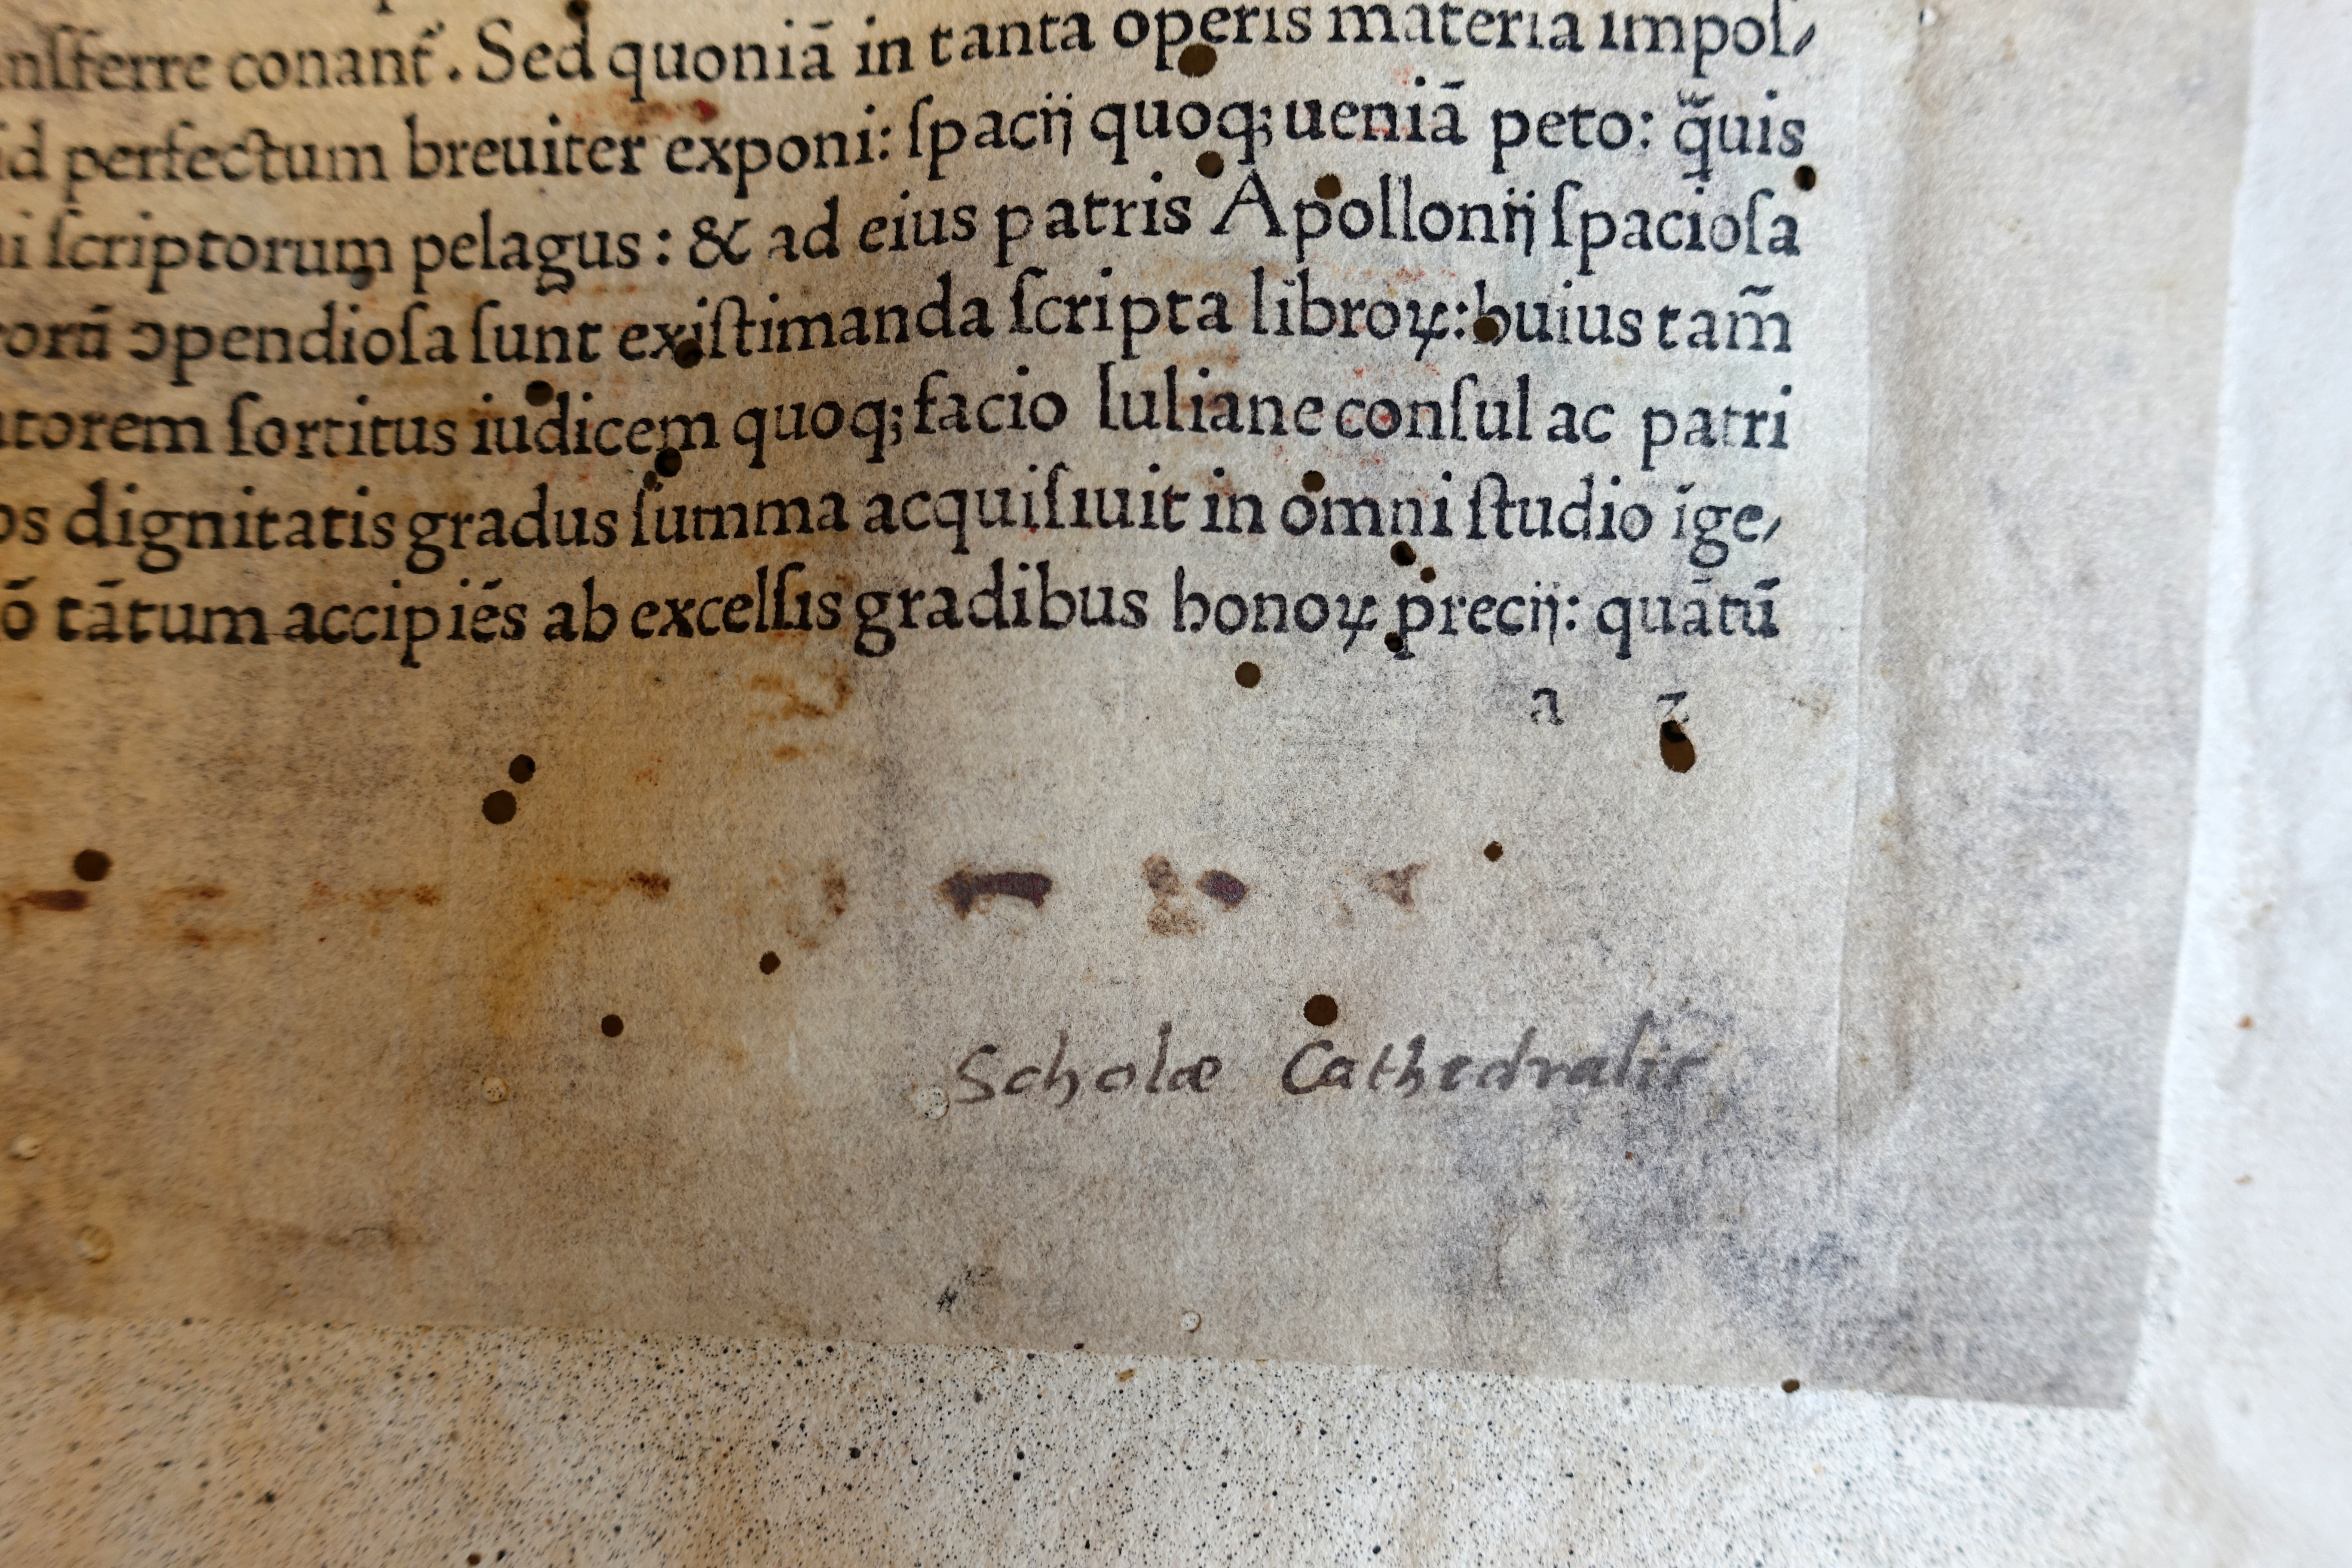 nſferre conant᷑. Sed quoniā in tanta operis materia impoſ⸗
id perfectum breuiter exponi: ſpacij quoq; ueniā peto: q̃uis
i ſcriptorum pelagus: & ad eius patris Apollonij ſpacioſa
orū ↄpendioſa ſunt exiſtimanda ſcripta libroꝝ: huius tam̄
torem ſortitus iudicem quoq; facio Iuliane conſul ac patri
os dignitatis gradus ſumma acquiſiuit in omni ſtudio īge⸗
ō tātum accipiēs ab excelſis gradibus honoꝝ precij: quātū
a 2
Scholæ Cathedralis